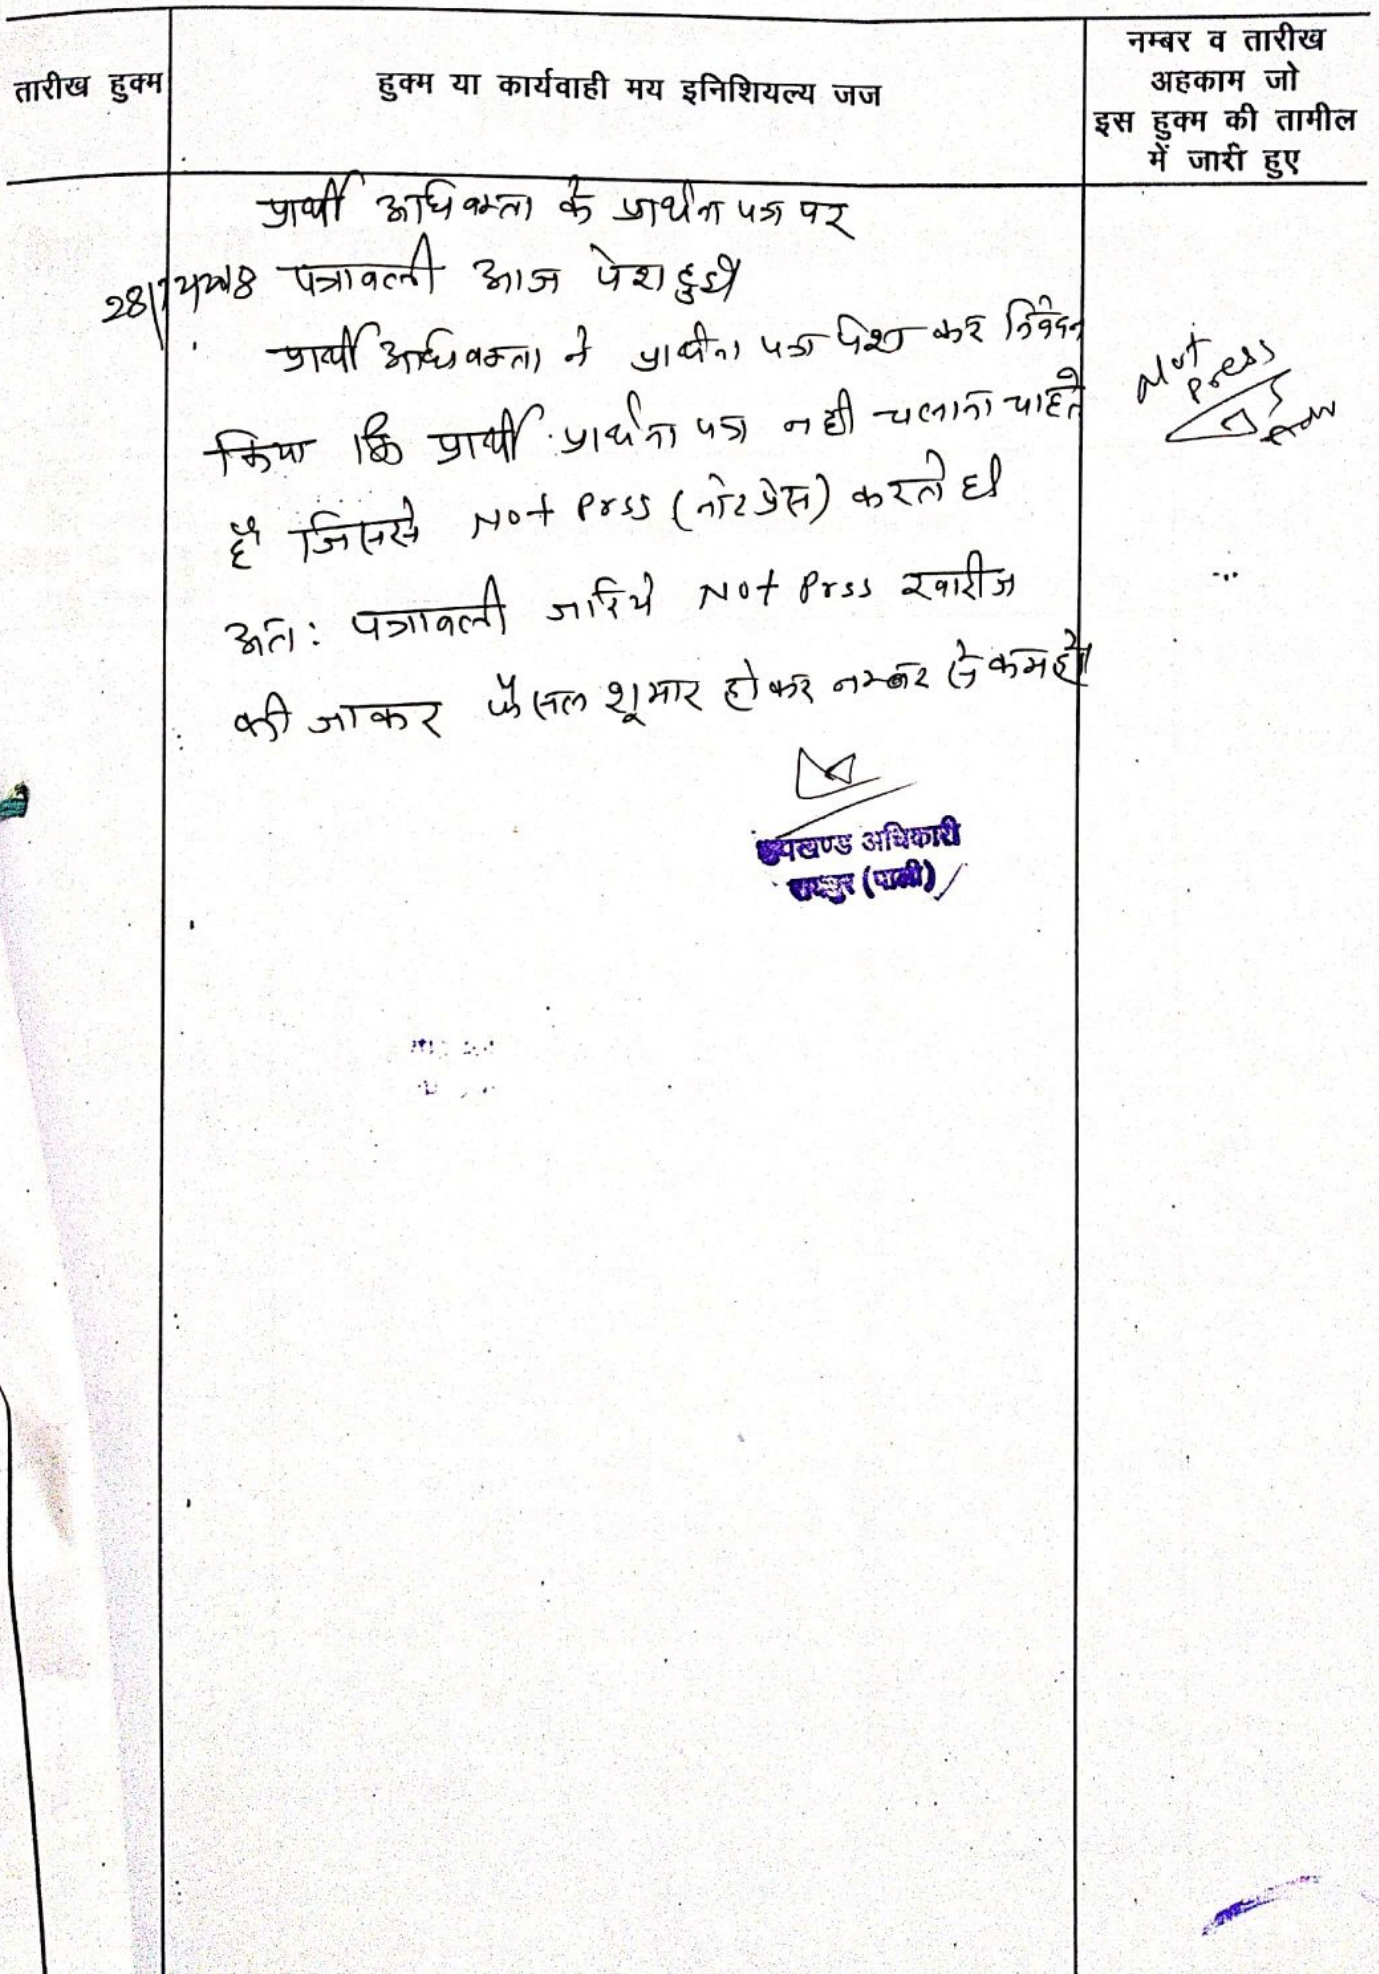 तारीख हुक्म
हुक्म या कार्यवाही मय इनिशियल्य जज
नम्बर व तारीख
अहकाम जो
इस हुक्म की तामील
में जारी हुए
प्रार्थी अधिवक्ता के प्रार्थना पत्र पर
पत्रावली आज पेश हुयी
प्रार्थी अधिवक्ता ने प्रार्थना पत्र पेश कर निवेदन
किया कि प्रार्थी प्रार्थना पत्र नही चलाना चाहते
है जिससे Not Prss (नोट प्रेस) करते है
अतः पत्रावली जरिये Not Prss खारीज
की जाकर फैसल शूमार होकर नम्बर से कम हो
Not
Press
उपखण्ड अधिकारी
रायपुर (पाली)